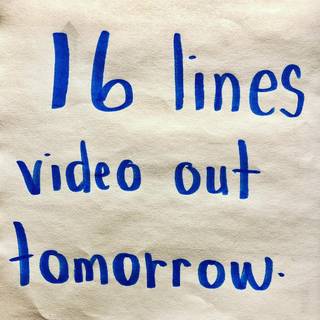 16 lines
video out
tomorrow.